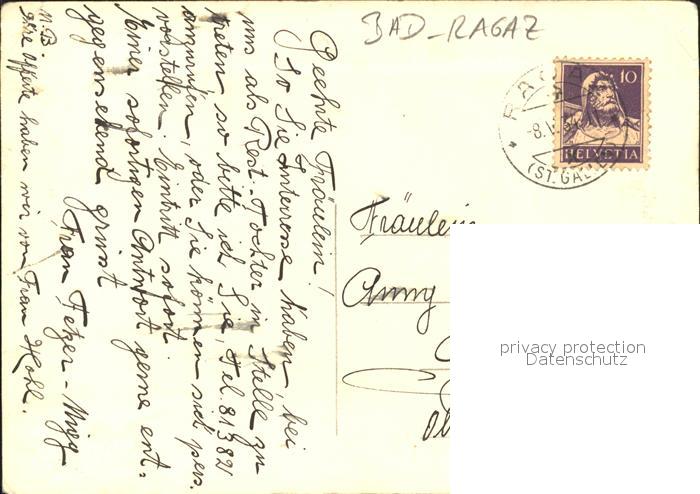 BAD-RAGAZ
RAGAZ
-8.V.
(ST. GA
10
HELVETIA
Geehrte Fräulein!
So Sie Interesse haben, bei
uns als Rest. Tochter in Stelle zu
treten so bitte ich Sie, Tel. 81382
anzurufen, oder Sie können sich pers.
vorstellen. Eintritt sofort.
Einer sofortigen Antwort gerne ent-
gegensehend grüsst
Frau Fetzer-Migg
N.B.
Ihre Offerte haben wir von Frau Hohl.
Fräulein
Anny
privacy protection
Datenschutz